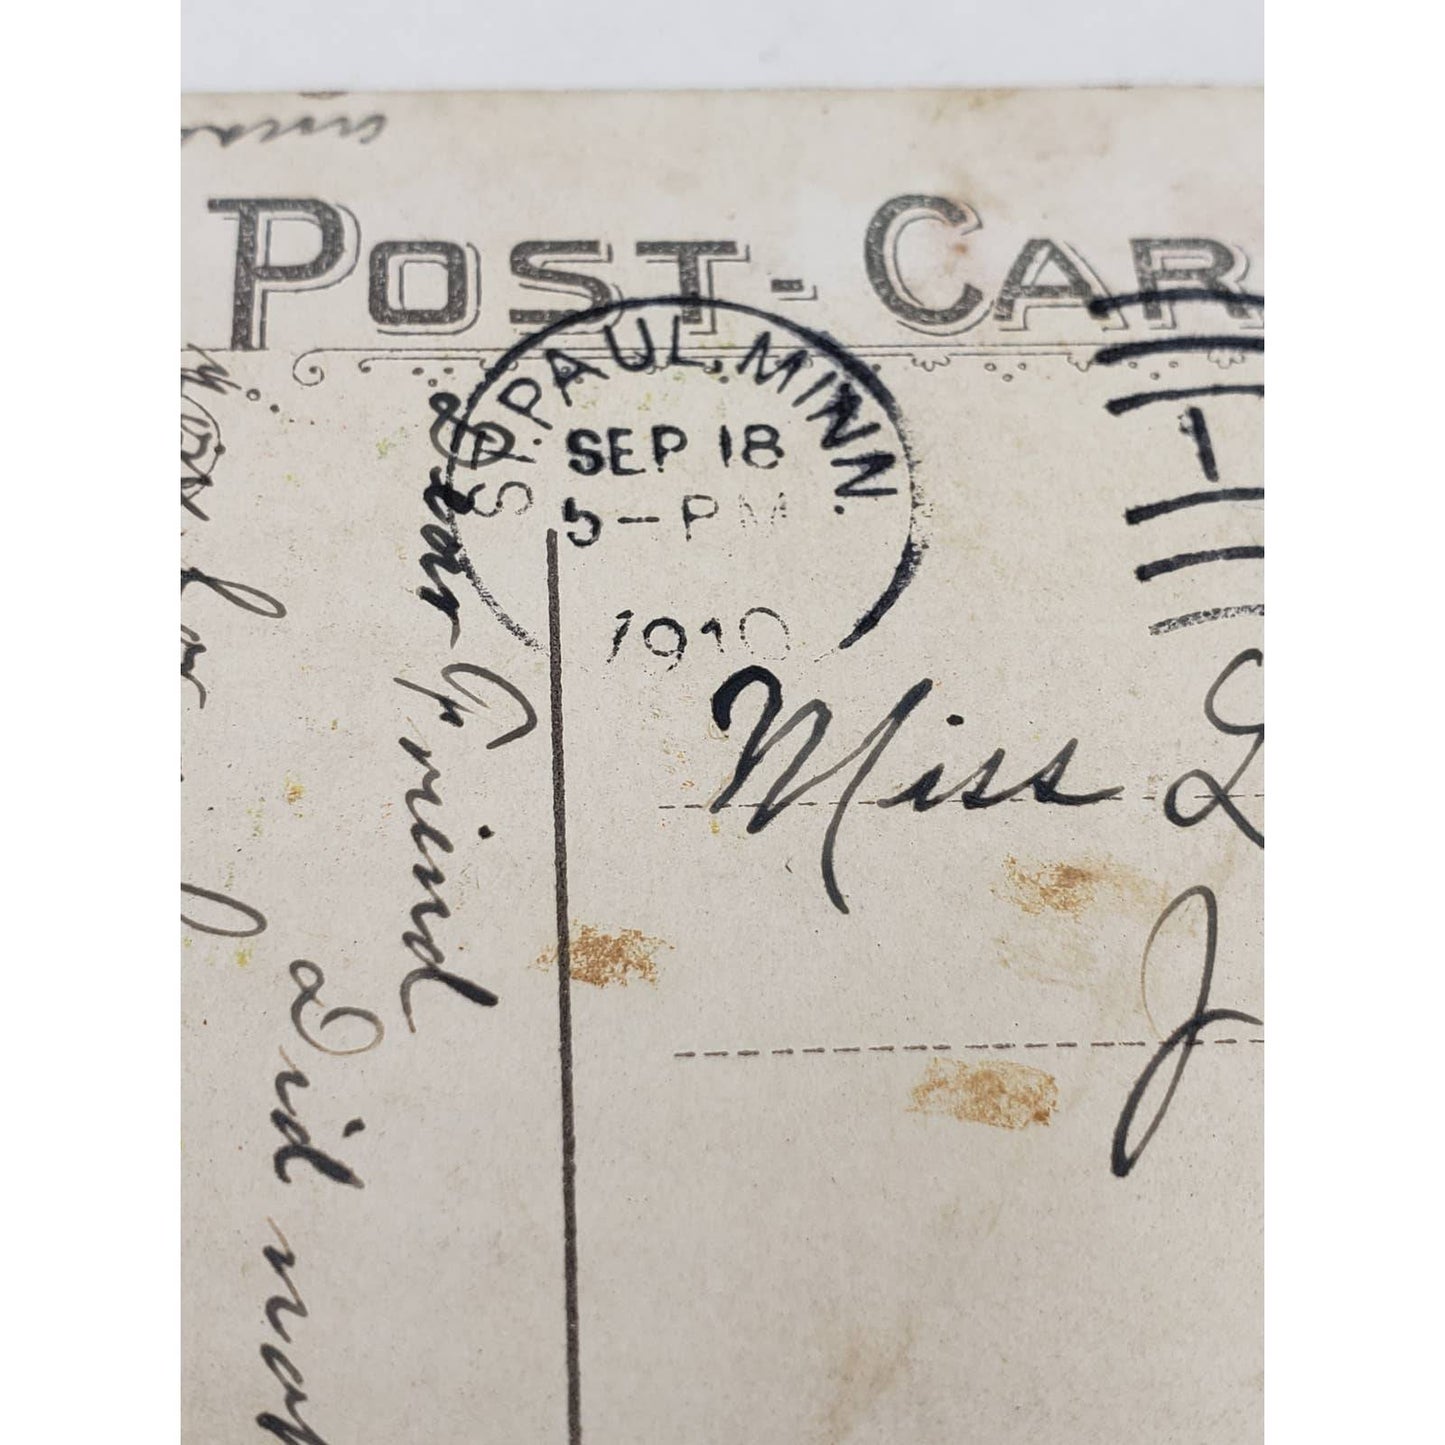 POST-CAR
ST. PAUL. MINN.
SEP 18
5-PM
1910
1
Miss
J
Dear Friend
Did not